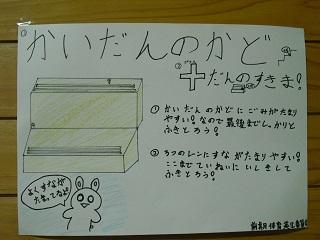 ①かいだんのかど
②+だんのすきま!
① かいだんのかどにごみがたまり
やすい!なので最後までしっかりと
ふきとろう!
② 3つのレンにすながたまりやすい!
ここまでていねいにいしきして
ふきとろう!
よくすなが
たまってるよ!
前期 体育